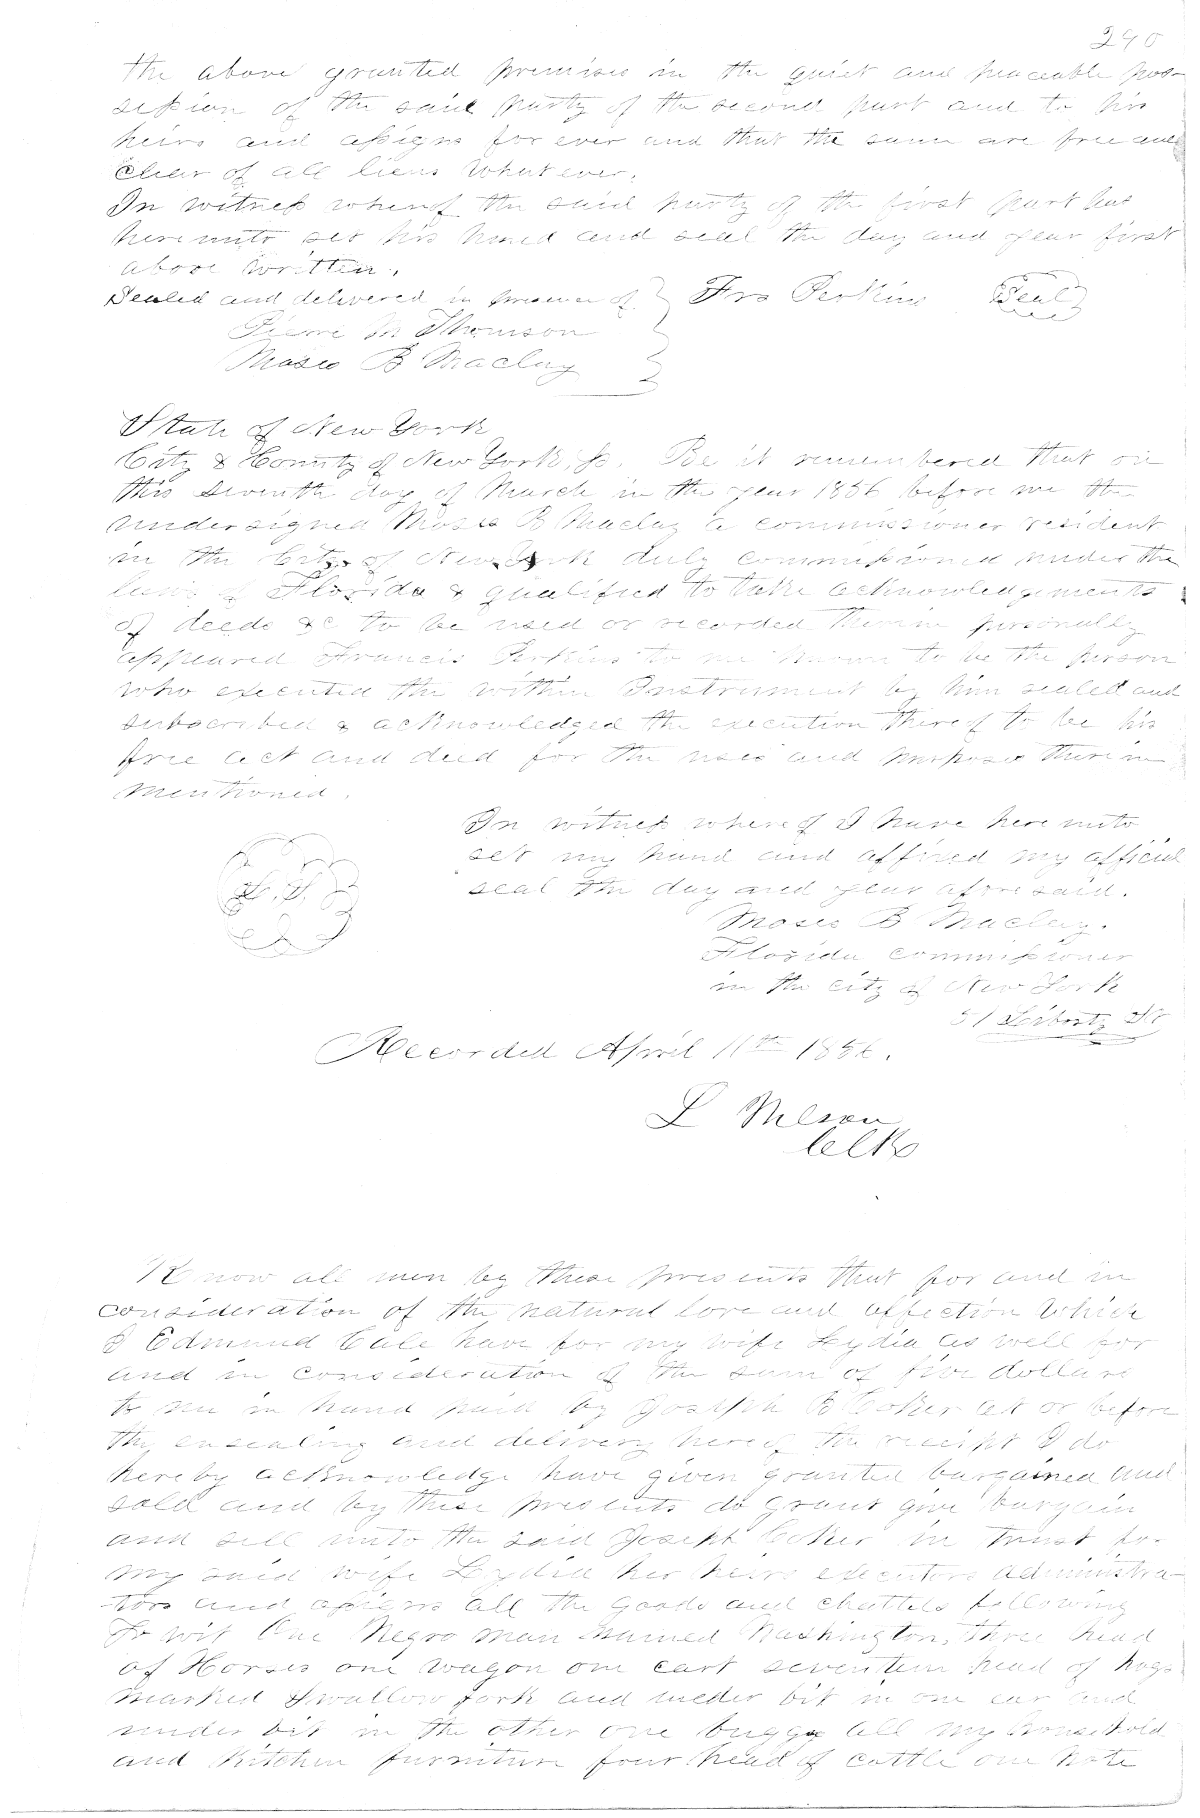 290
the above granted premises in the quiet and peaceable pos-
session of the said party of the second part and to his
heirs and assigns for ever and that the same are free and
clear of all liens whatever.
In witness whereof the said party of the first part has
hereunto set his hand and seal the day and year first
above written.
Sealed and delivered in presence of } Frs Perkins Seal
Pierre M Thomson
Moses B Maclay
State of New York
City & County of New York, Ss. Be it remembered that on
this seventh day of March in the year 1856 before me the
undersigned Moses B Maclay a commissioner resident
in the City of New York duly commissioned under the
laws of Florida & qualified to take acknowledgements
of deeds &c to be used or recorded therein personally
appeared Francis Perkins to me known to be the person
who executed the within Instrument by him sealed and
subscribed & acknowledged the execution thereof to be his
free act and deed for the uses and purposes therein
mentioned.
In witness whereof I have here unto
set my hand and affixed my official
seal the day and year afore said.
L.S.
Moses B Maclay.
Florida commissioner
in the city of New York
51 Liberty St
Recorded April 11th 1856.
L Nelson
Clk
Know all men by these presents that for and in
consideration of the natural love and affection which
I Edmund Cale have for my wife Lydia as well for
and in consideration of the sum of five dollars
to me in hand paid by Joseph B Coker at or before
the ensealing and delivery hereof the receipt I do
hereby acknowledge have given granted bargained and
sold and by these presents do grant give bargain
and sell unto the said Joseph Coker in trust for
my said wife Lydia her heirs executors administra-
tors and assigns all the goods and chattels following
To wit One Negro man named Washington, three head
of Horses one wagon one cart seventeen head of hogs
marked Swallow fork and under bit in one ear and
under bit in the other one buggy all my household
and kitchen furniture four head of cattle one note